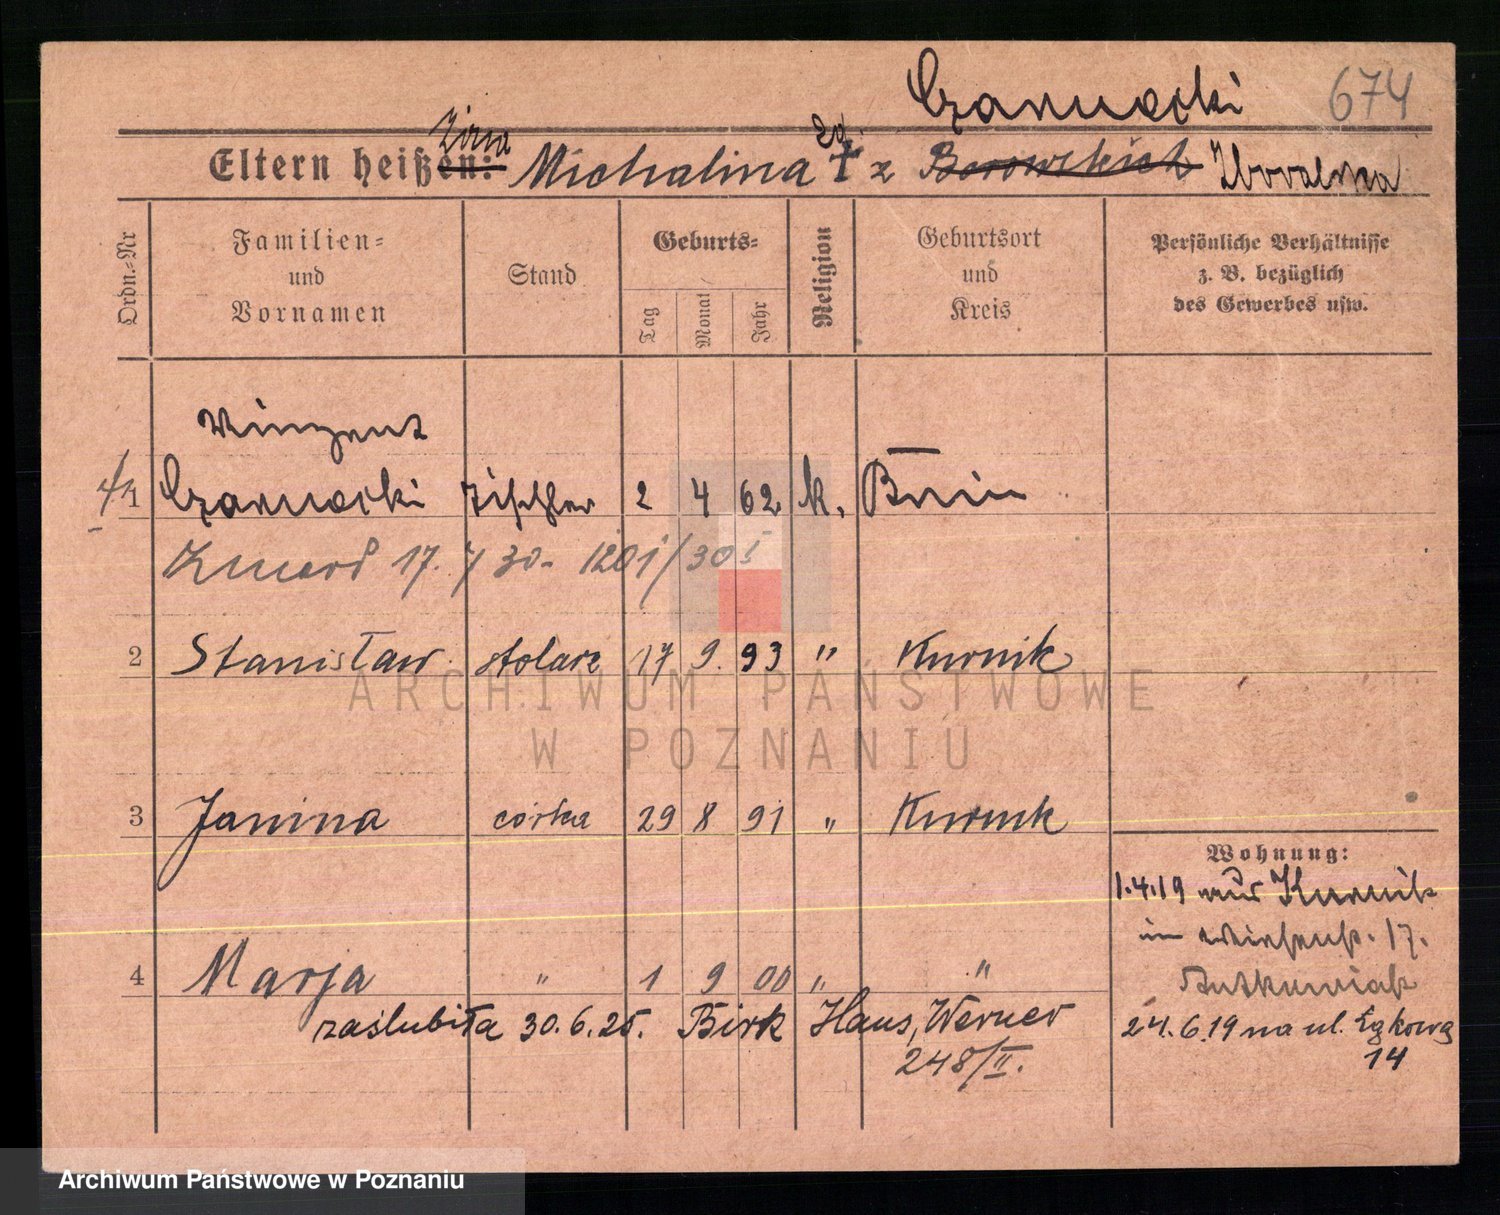 Czarnecki 674
Żona
Eltern heißen: Michalina z Borowskich
Ordn.-Nr
Familien=
und
Vornamen
Stand
Geburts=
Tag
Monat
Jahr
Religion
Geburtsort
und
Kreis
Persönliche Verhältnisse
z. B. bezüglich
des Gewerbes usw.
Vinzent
1 Czarnecki Tischler 2 4 62 k. Bnin
Zmarł 17. 7 30 - 1201/30
2 Stanisław stolarz 17 9. 93 " Kurnik
3 Janina córka 29 8 91 " Kurnik
Wohnung:
1.4.19 aus Kurnik
in Wiesenstr. 17.
Ratkowiak
4 Marja " 1 9 00 " "
zaślubiła 30.6.25. Birk Hans, Werner
248/II.
24.6.19 na ul. Łąkową
14
ARCHIWUM PAŃSTWOWE
W POZNANIU
Archiwum Państwowe w Poznaniu